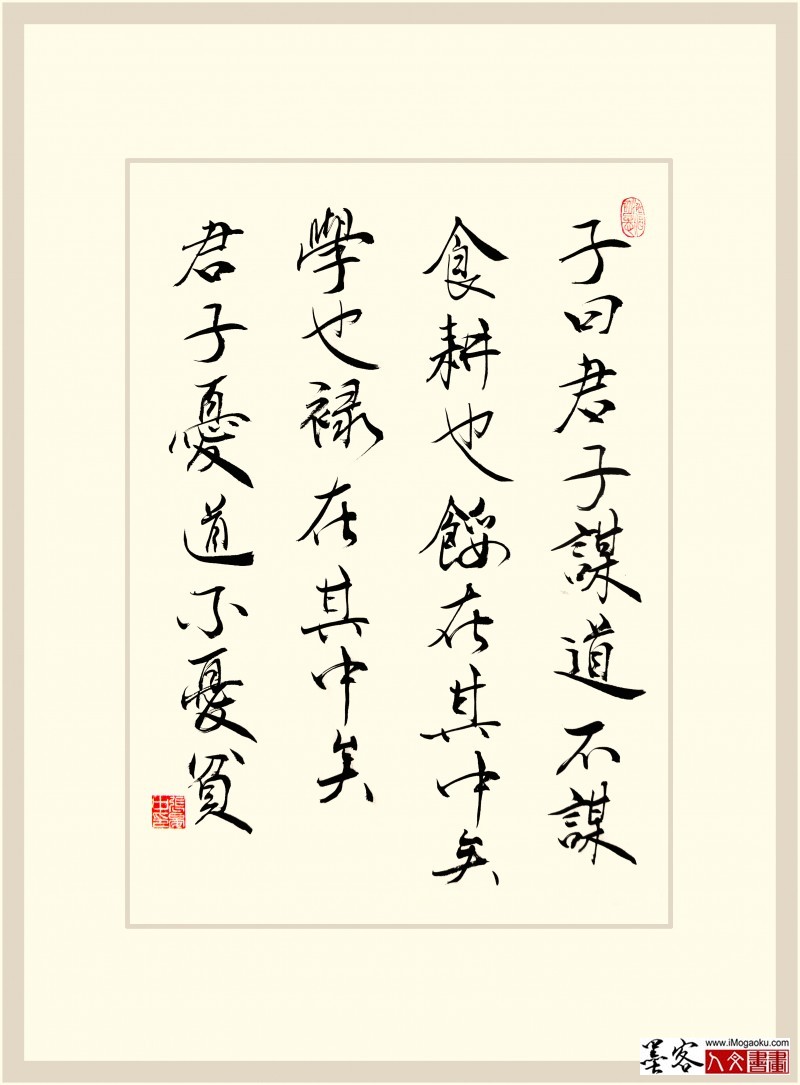 子曰君子謀道不謀
食耕也餒在其中矣
學也禄在其中矣
君子憂道不憂貧
墨客
www.iMogaoku.com
人文書畫